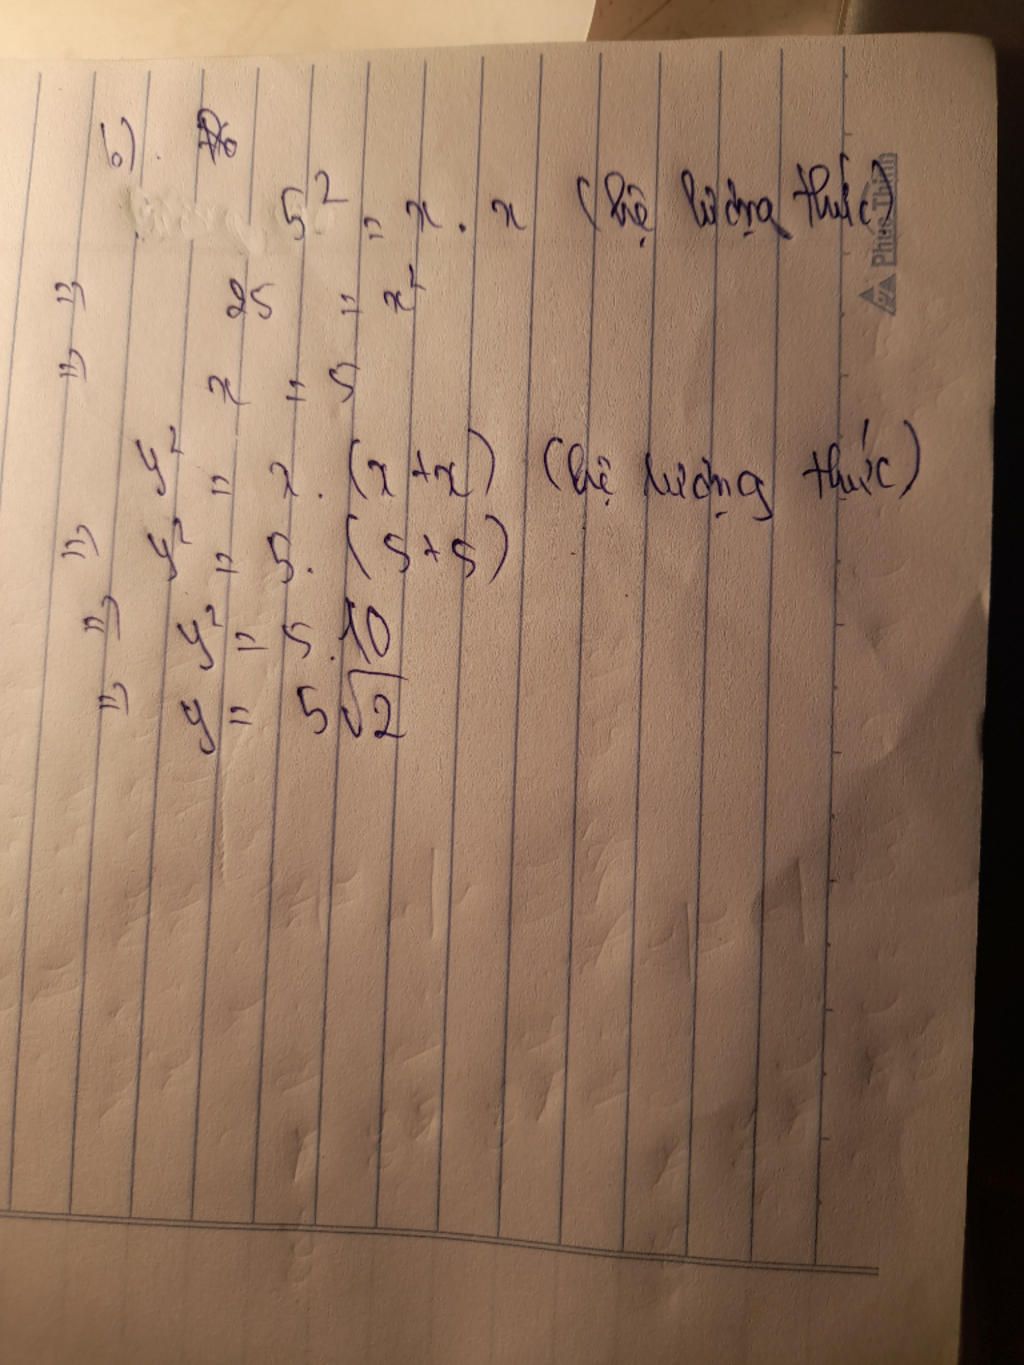 b).
5² = x . x (hệ lượng thức)
=> 25 = x²
=> x = 5
y² = x . (x + x) (hệ lượng thức)
=> y² = 5. (5 + 5)
=> y² = 5.10
=> y = 5√2
Phúc Thịnh